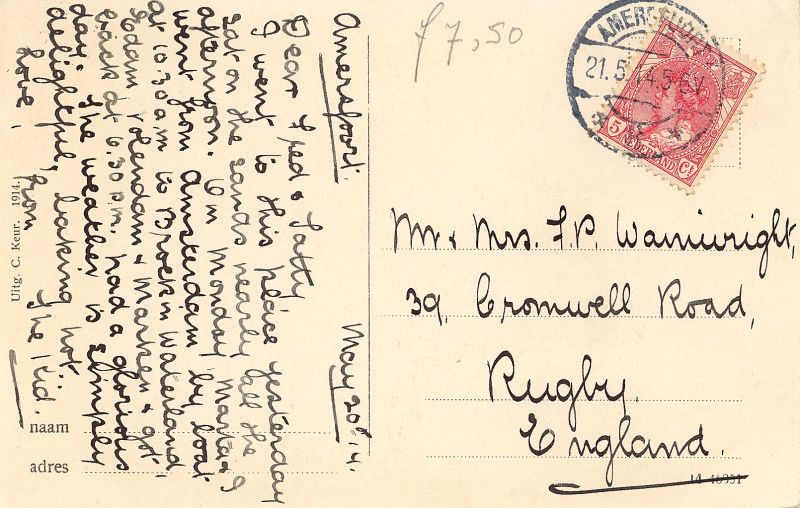 Amersfoort. May 20th 14.
Dear Fred & Patty
I went to this place yesterday
sat on the sands nearly all the
afternoon. On Monday Marta & I
went from Amsterdam by boat
at 10.30 am to Broek in Waterland
Edam Volendam & Marken & got
back at 6.30 p.m. had a glorious
day. The weather is simply
delightful, baking hot.
Love, from The Kid.
Uitg. C. Keur. 1914.
naam
adres
f 7,50
AMERSFOORT
21.5.14.5-6V
5 NEDERLAND Ct
Mr & Mrs. F.P. Wainwright,
39, Cromwell Road,
Rugby.
England.
14 46331